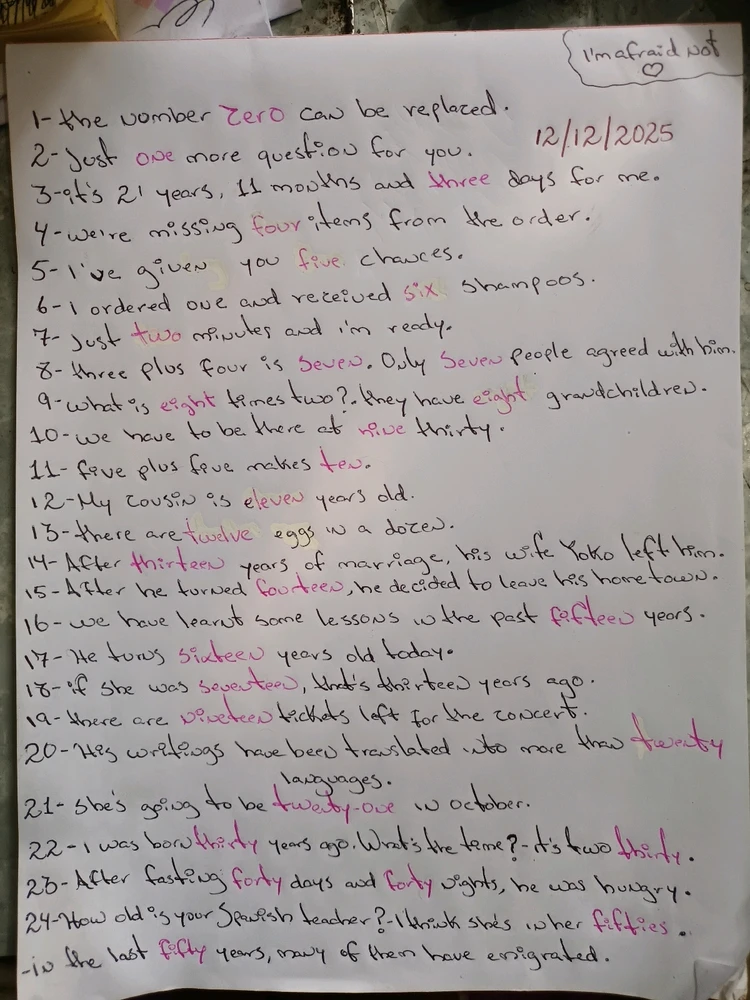 I'm afraid not
1- the number zero can be replaced.
12/12/2025
2- Just one more question for you.
3- it's 21 years, 11 months and three days for me.
4- we're missing four items from the order.
5- I've given you five chances.
6- I ordered one and received six shampoos.
7- Just two minutes and i'm ready.
8- three plus four is seven. Only seven people agreed with him.
9- what is eight times two?. they have eight grandchildren.
10- we have to be there at nine thirty.
11- five plus five makes ten.
12- My cousin is eleven years old.
13- there are twelve eggs in a dozen.
14- After thirteen years of marriage, his wife Yoko left him.
15- After he turned fourteen, he decided to leave his home town.
16- we have learnt some lessons in the past fifteen years.
17- He turns sixteen years old today.
18- if she was seventeen, that's thirteen years ago.
19- there are nineteen tickets left for the concert.
20- His writings have been translated into more than twenty
languages.
21- she's going to be twenty-one in october.
22- I was born thirty years ago. What's the time?- it's two thirty.
23- After fasting forty days and forty nights, he was hungry.
24- How old is your Spanish teacher?- I think she's in her fifties.
- in the last fifty years, many of them have emigrated.